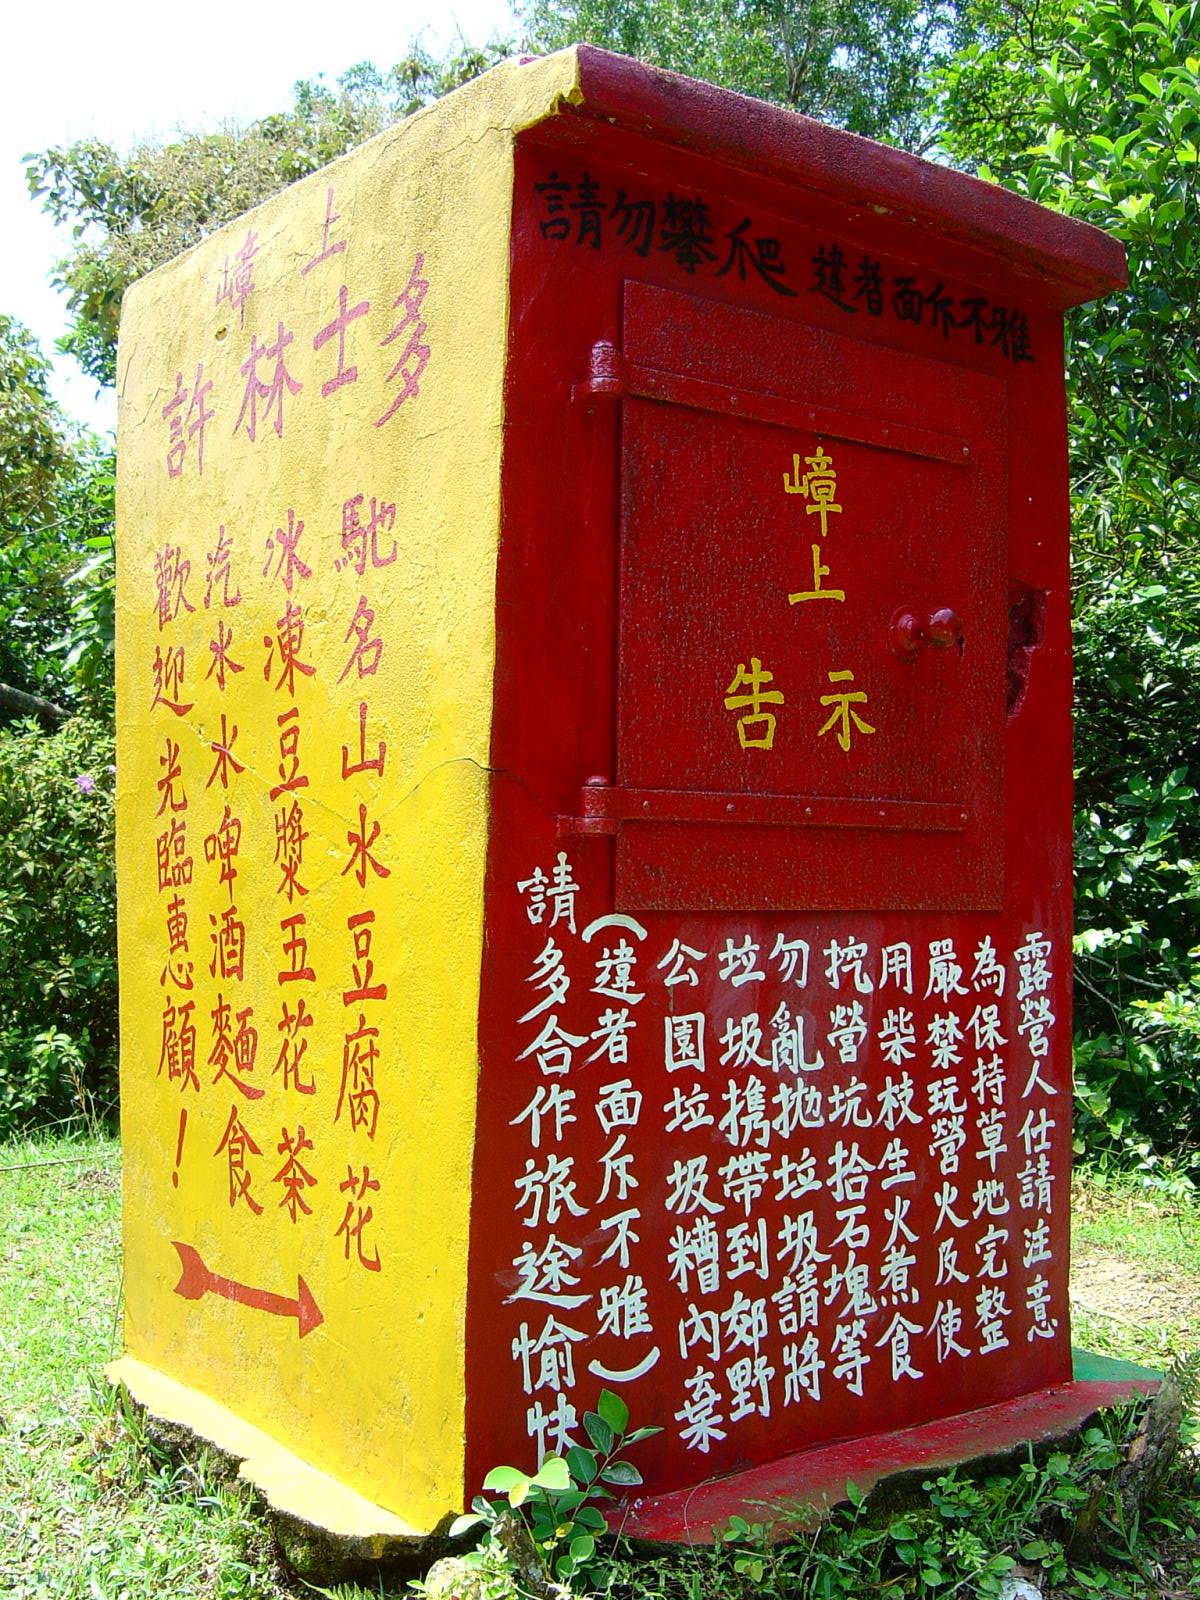 嶂上
許林士多
馳名山水豆腐花
冰凍豆漿五花茶
汽水水啤酒麵食
歡迎光臨惠顧！
請勿攀爬 違者面斥不雅
嶂上
告示
露營人仕請注意
為保持草地完整
嚴禁玩營火及使
用柴枝生火煮食
挖營坑拾石塊等
勿亂拋垃圾請將
垃圾携帶到郊野
公園垃圾糟內棄
(違者面斥不雅)
請多合作旅途愉快